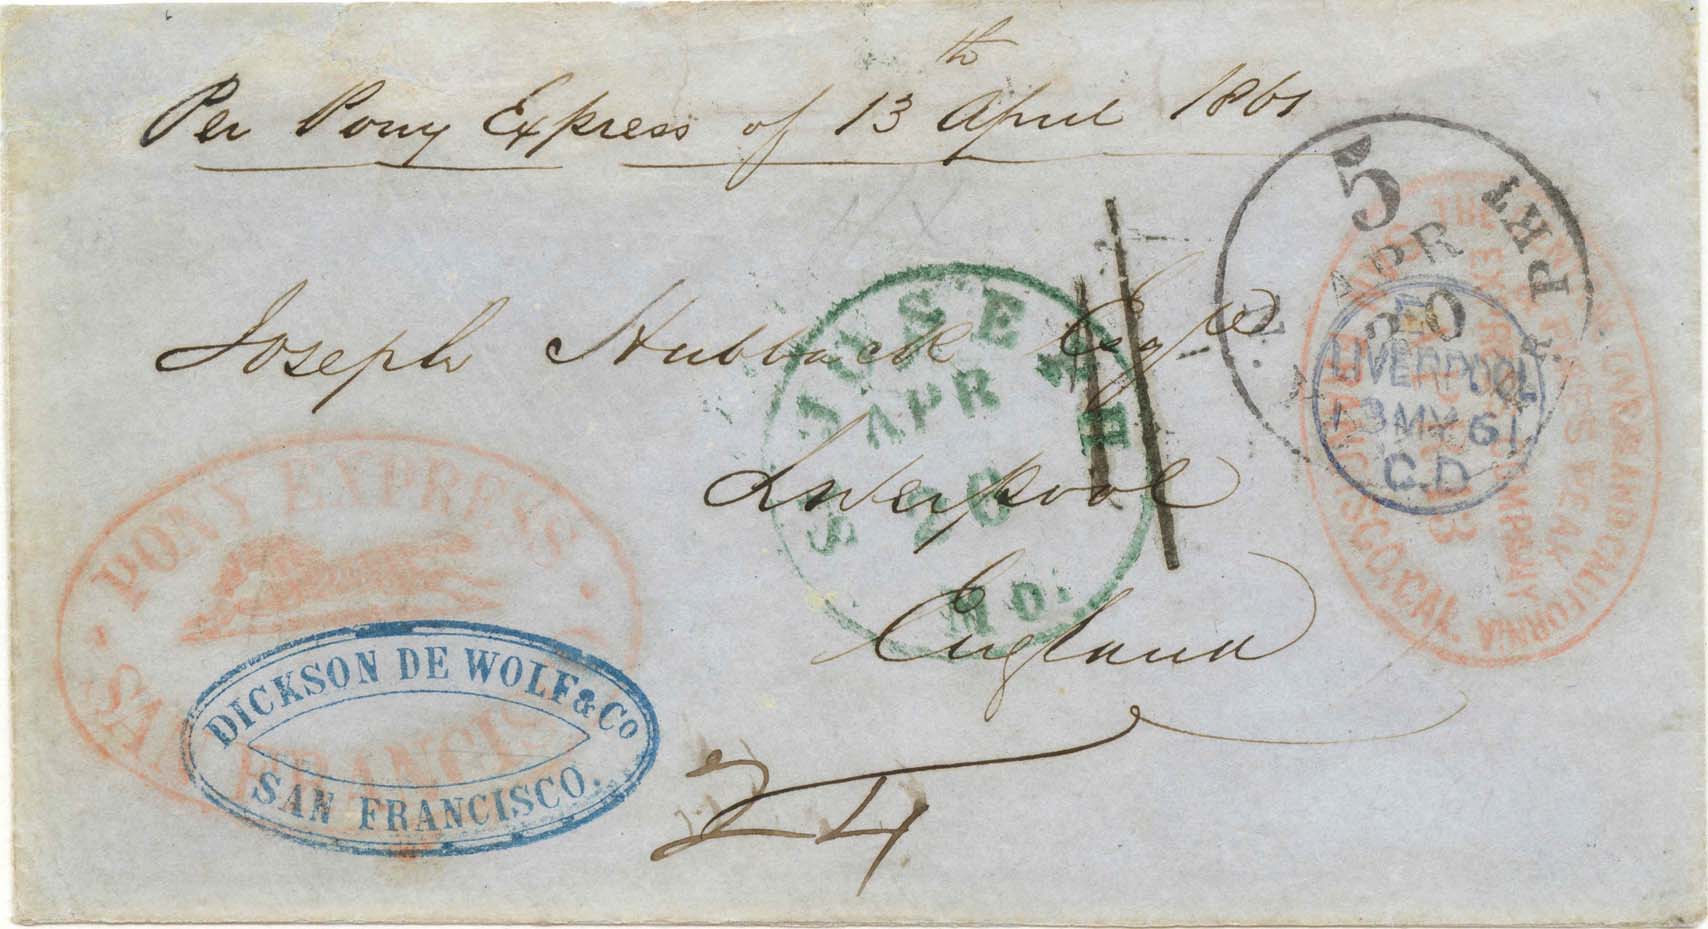 Per Pony Express of 13th April 1861
Joseph Hubback Esqre
Liverpool
England
24
5
N. YORK
APR 30
PKT
ST JOSEPH
APR
26
Mo.
LIVERPOOL
13 MY 61
C.D
PONY EXPRESS
SAN FRANCISCO
DICKSON DE WOLF & Co
SAN FRANCISCO.
THE CENTRAL OVERLAND CALIFORNIA
& PIKES PEAK
EXPRESS COMPANY
SAN FRANCISCO, CAL.